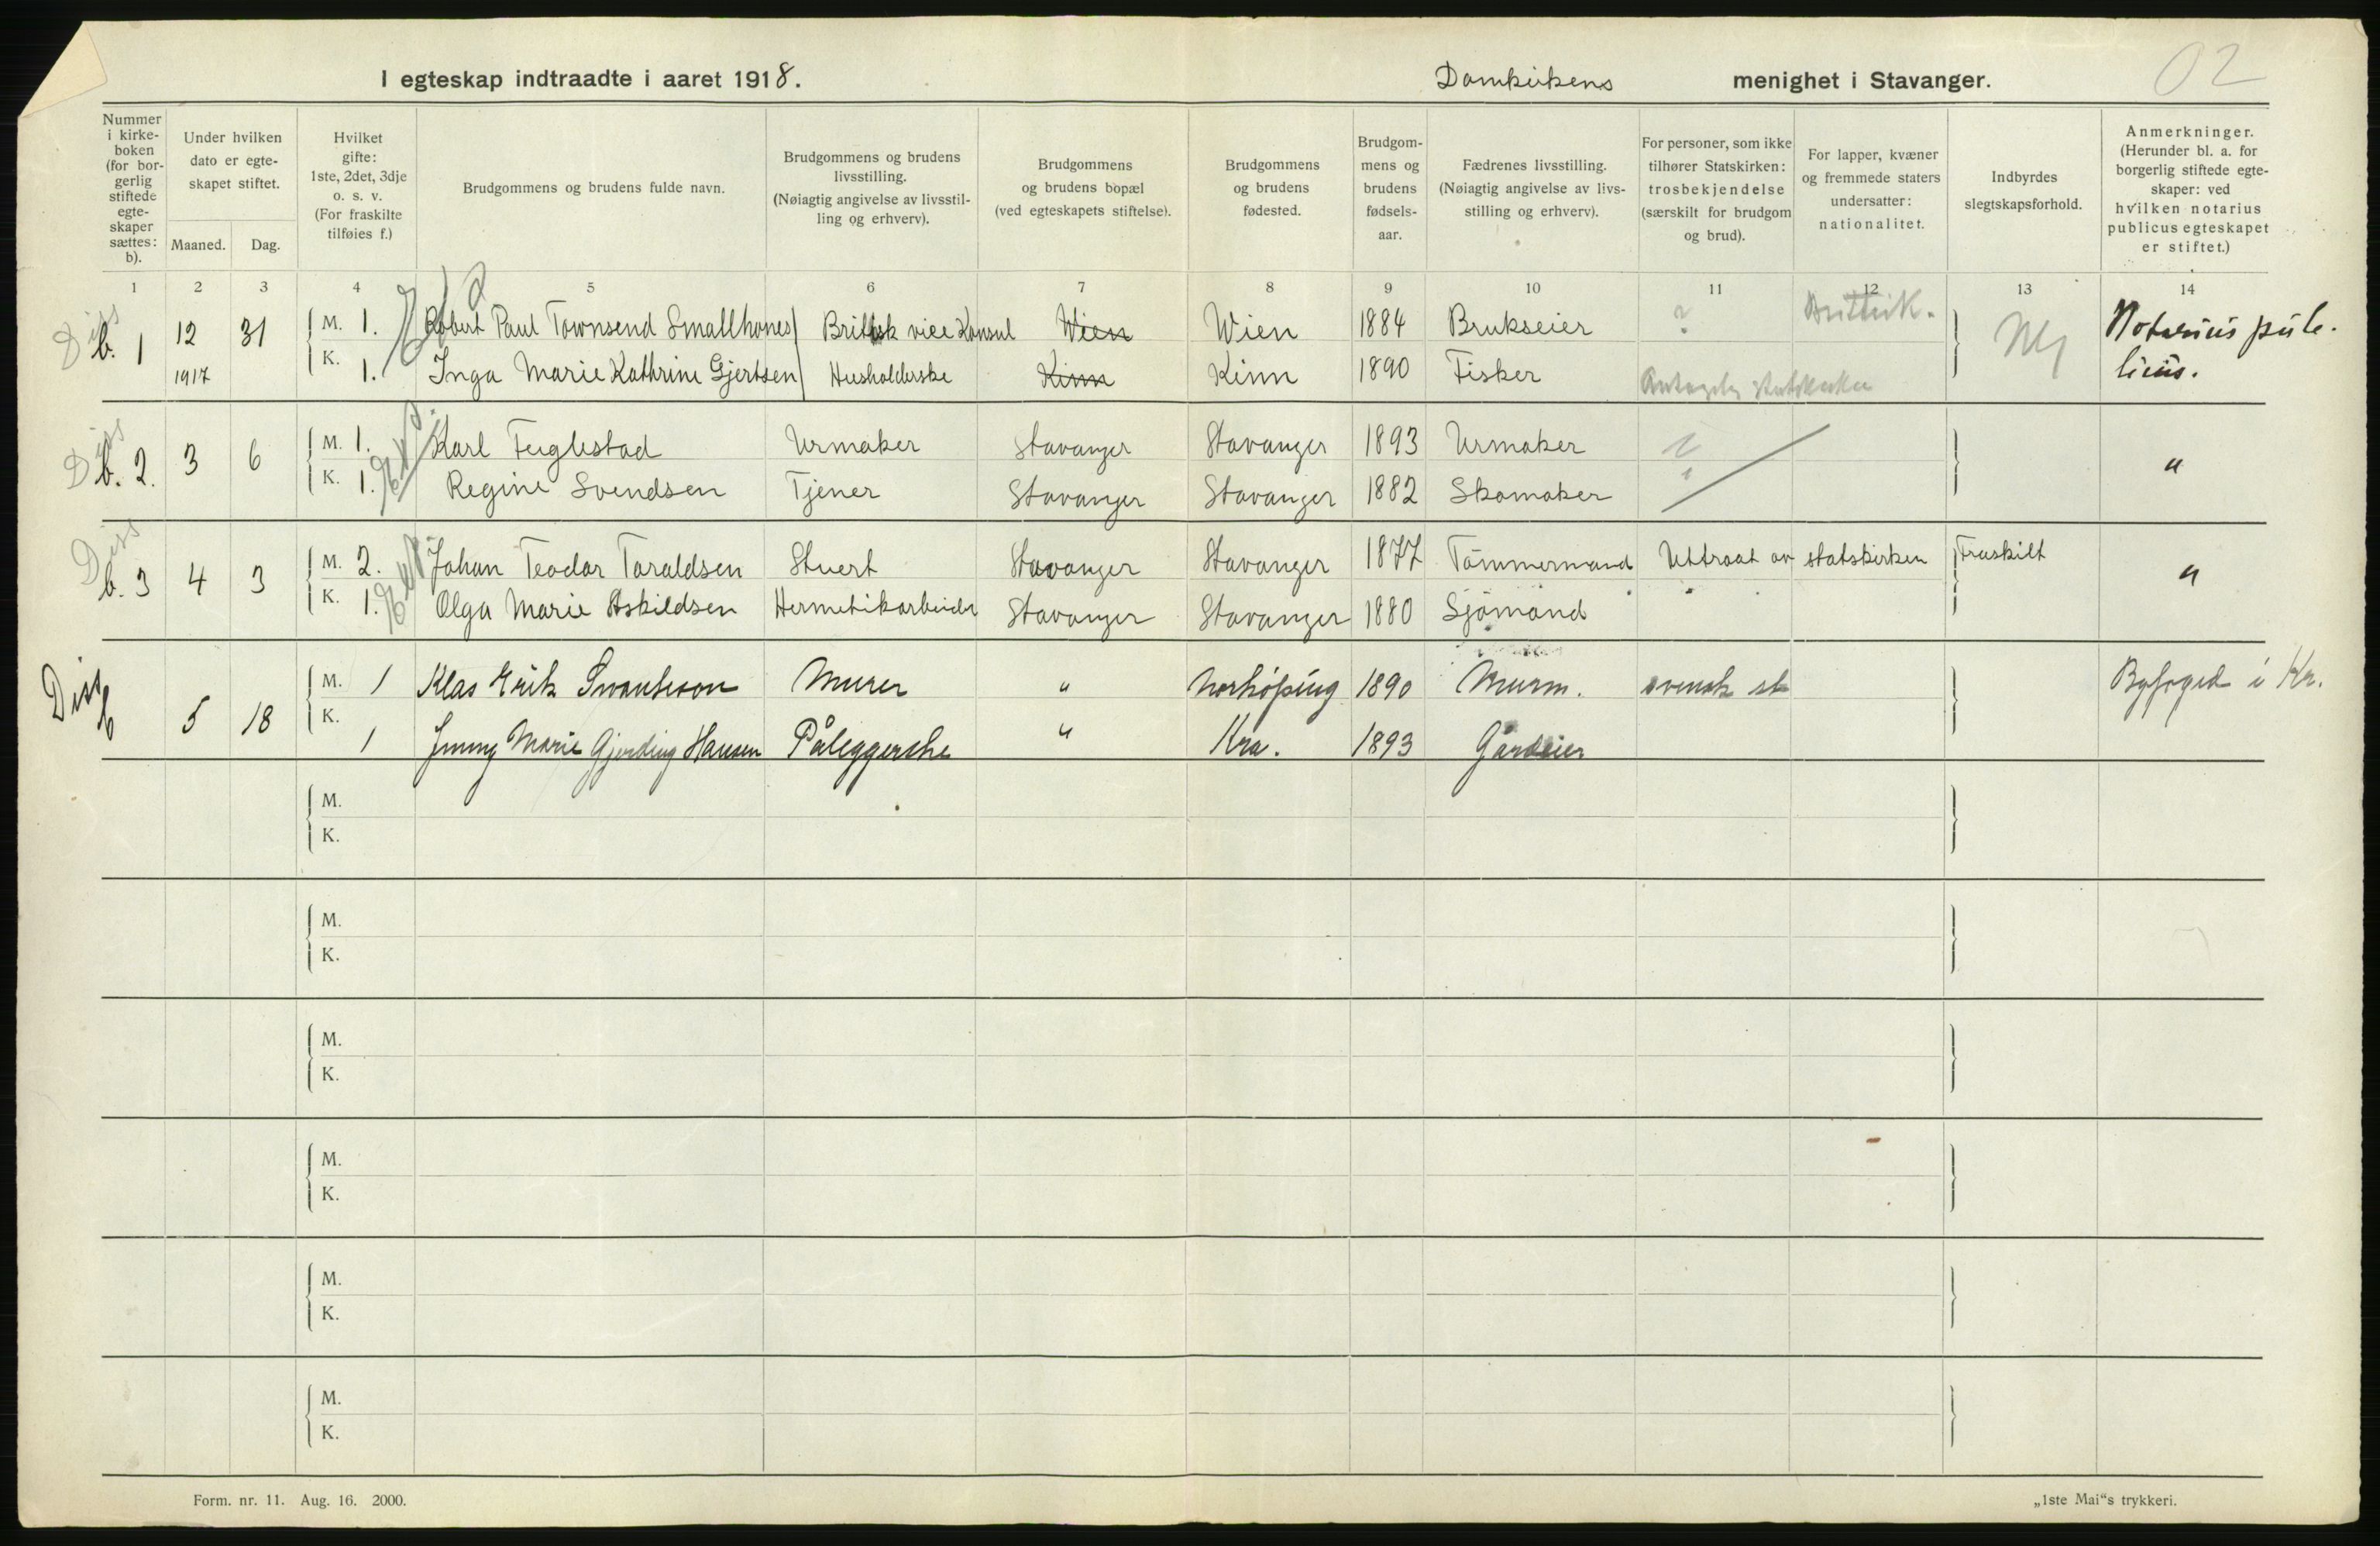 02
I egteskap indtraadte i aaret 1918. Domkirkens menighet i Stavanger.
Nummer i kirke-boken (for bor-gerlig stiftede egte-skaper sættes: b).
Under hvilken dato er egte-skapet stiftet.
Maaned. Dag.
Hvilket gifte: 1ste, 2det, 3dje o. s. v. (For fraskilte tilføies f.)
Brudgommens og brudens fulde navn.
Brudgommens og brudens livsstilling. (Nøiagtig angivelse av livsstil-ling og erhverv).
Brudgommens og brudens bopæl (ved egteskapets stiftelse).
Brudgommens og brudens fødested.
Brudgom-mens og brudens fødsels-aar.
Fædrenes livsstilling. (Nøiagtig angivelse av livs-stilling og erhverv).
For personer, som ikke tilhører Statskirken: trosbekjendelse (særskilt for brudgom og brud).
For lapper, kvæner og fremmede staters undersatter: nationalitet.
Indbyrdes slegtskapsforhold.
Anmerkninger. (Herunder bl. a. for borgerlig stiftede egte-skaper: ved hvilken notarius publicus egteskapet er stiftet.)
1 2 3 4 5 6 7 8 9 10 11 12 13 14
Diss b. 1 12 31 M. 1. Robert Paul Townsend Smallhones Britisk vice Konsul Wien Wien 1884 Brukseier ? Brittisk. Nei Notarius pub-
1917 K. 1. Inga Marie Kathrine Gjertsen Husholderske Kinn Kinn 1890 Fisker Antagelig statskirken licus.
Diss b. 2. 3 6 M. 1. Karl Fuglestad Urmaker Stavanger Stavanger 1893 Urmaker "
K. 1. Regine Svendsen Tjener Stavanger Stavanger 1882 Skomaker
Diss b. 3 4 3 M. 2. Johan Teodor Taraldsen Stuert Stavanger Stavanger 1877 Tömmermand Uttraat av statskirken Fraskilt "
K. 1. Olga Marie Askildsen Hermetikarbeider Stavanger Stavanger 1880 Sjömand
Diss b 5 18 M. 1 Klas Erik Svantesson Murer " Norköping 1890 Murm. svensk st Byfoged i Kr.
K. 1 Jenny Marie Gjerding Hansen Påleggerske " Kra. 1893 Gårdeier
M.
K.
M.
K.
M.
K.
M.
K.
M.
K.
M.
K.
Form. nr. 11. Aug. 16. 2000. „1ste Mai“s trykkeri.